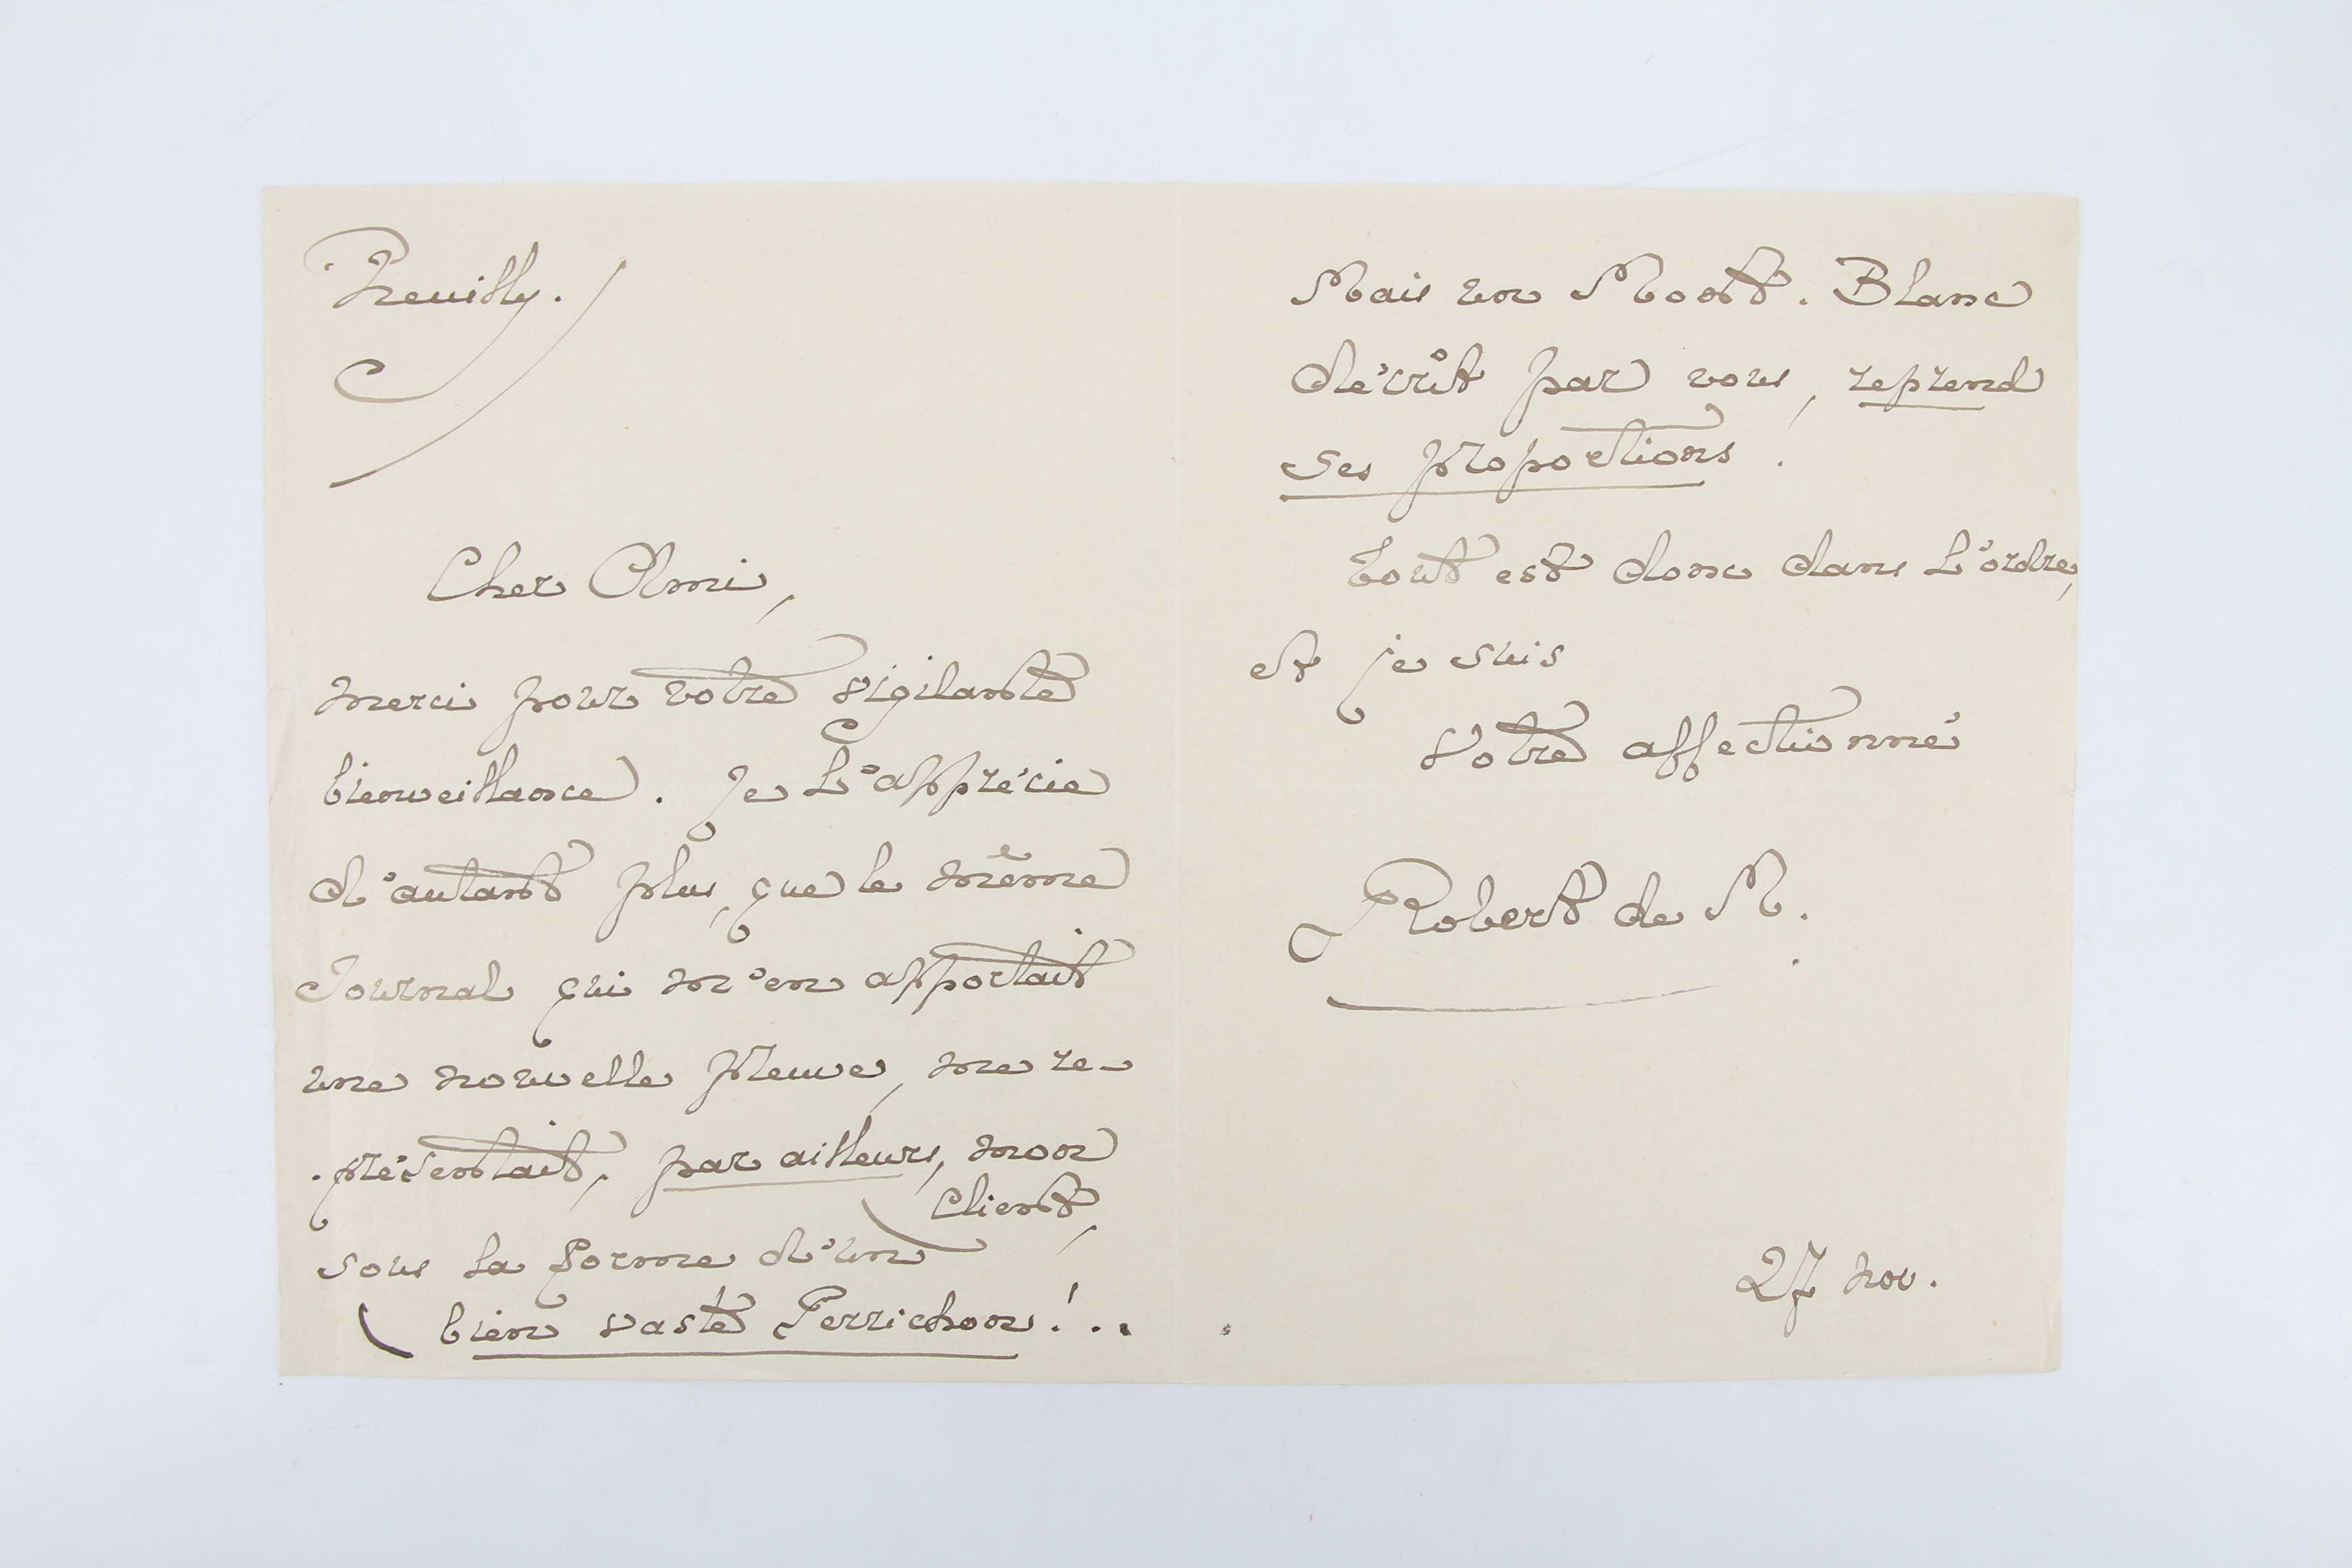 Neuilly.
Cher Ami,
merci pour votre vigilante
bienveillance. Je l'apprécie
d'autant plus, que le même
Journal qui m'en apportait
une nouvelle preuve, me re-
présentait, par ailleurs, mon
Client,
sous la forme d'un
bien vaste Perrichon!..
Mais un Mont. Blanc
décrit par vous, reprend
ses proportions.
Tout est donc dans l'ordre,
et je suis
Votre affectionné
Robert de M.
27 nov.